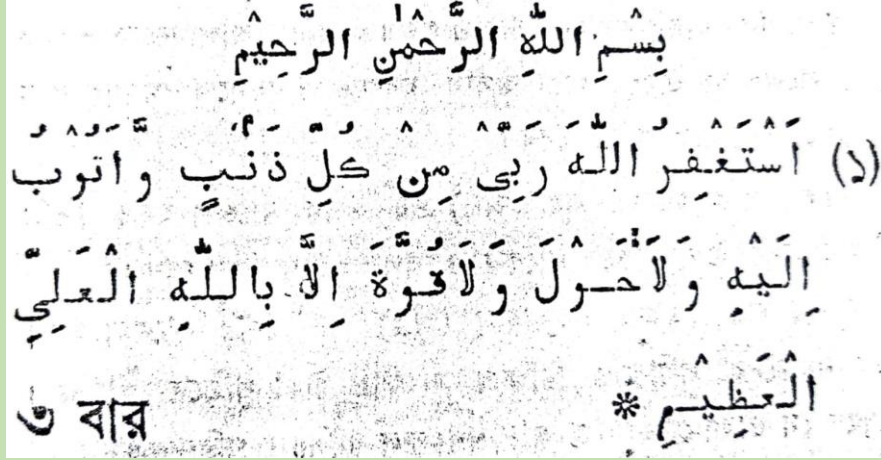 بِسْمِ اللّٰهِ الرَّحْمٰنِ الرَّحِيْمِ
(১) اَسْتَغْفِرُ اللّٰهَ رَبِّىْ مِنْ كُلِّ ذَنْۢبٍ وَّاَتُوْبُ
اِلَيْهِ وَلَاحَوْلَ وَلَاقُوَّةَ اِلَّا بِاللّٰهِ الْعَلِىِّ
الْعَظِيْمِ * ৩ বার